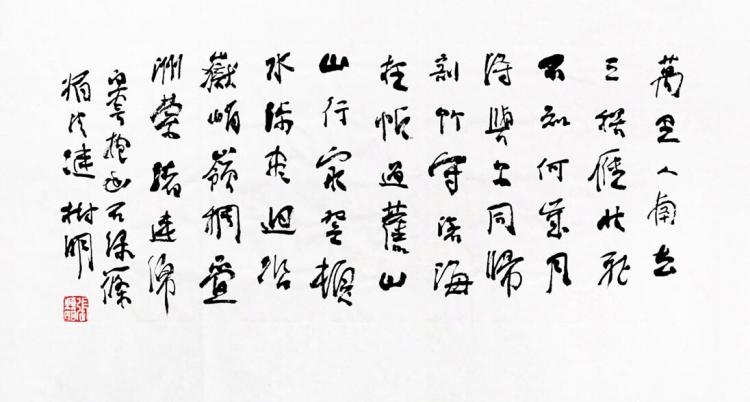 萬里人南去
三春雁北飛
不知何歲月
得與尔同歸
剖竹守滄海
枉帆過舊山
山行窮登頓
水涉盡洄沿
巖峭嶺稠疊
洲縈渚連綿
白雲抱幽石綠篠
媚清漣 樹明